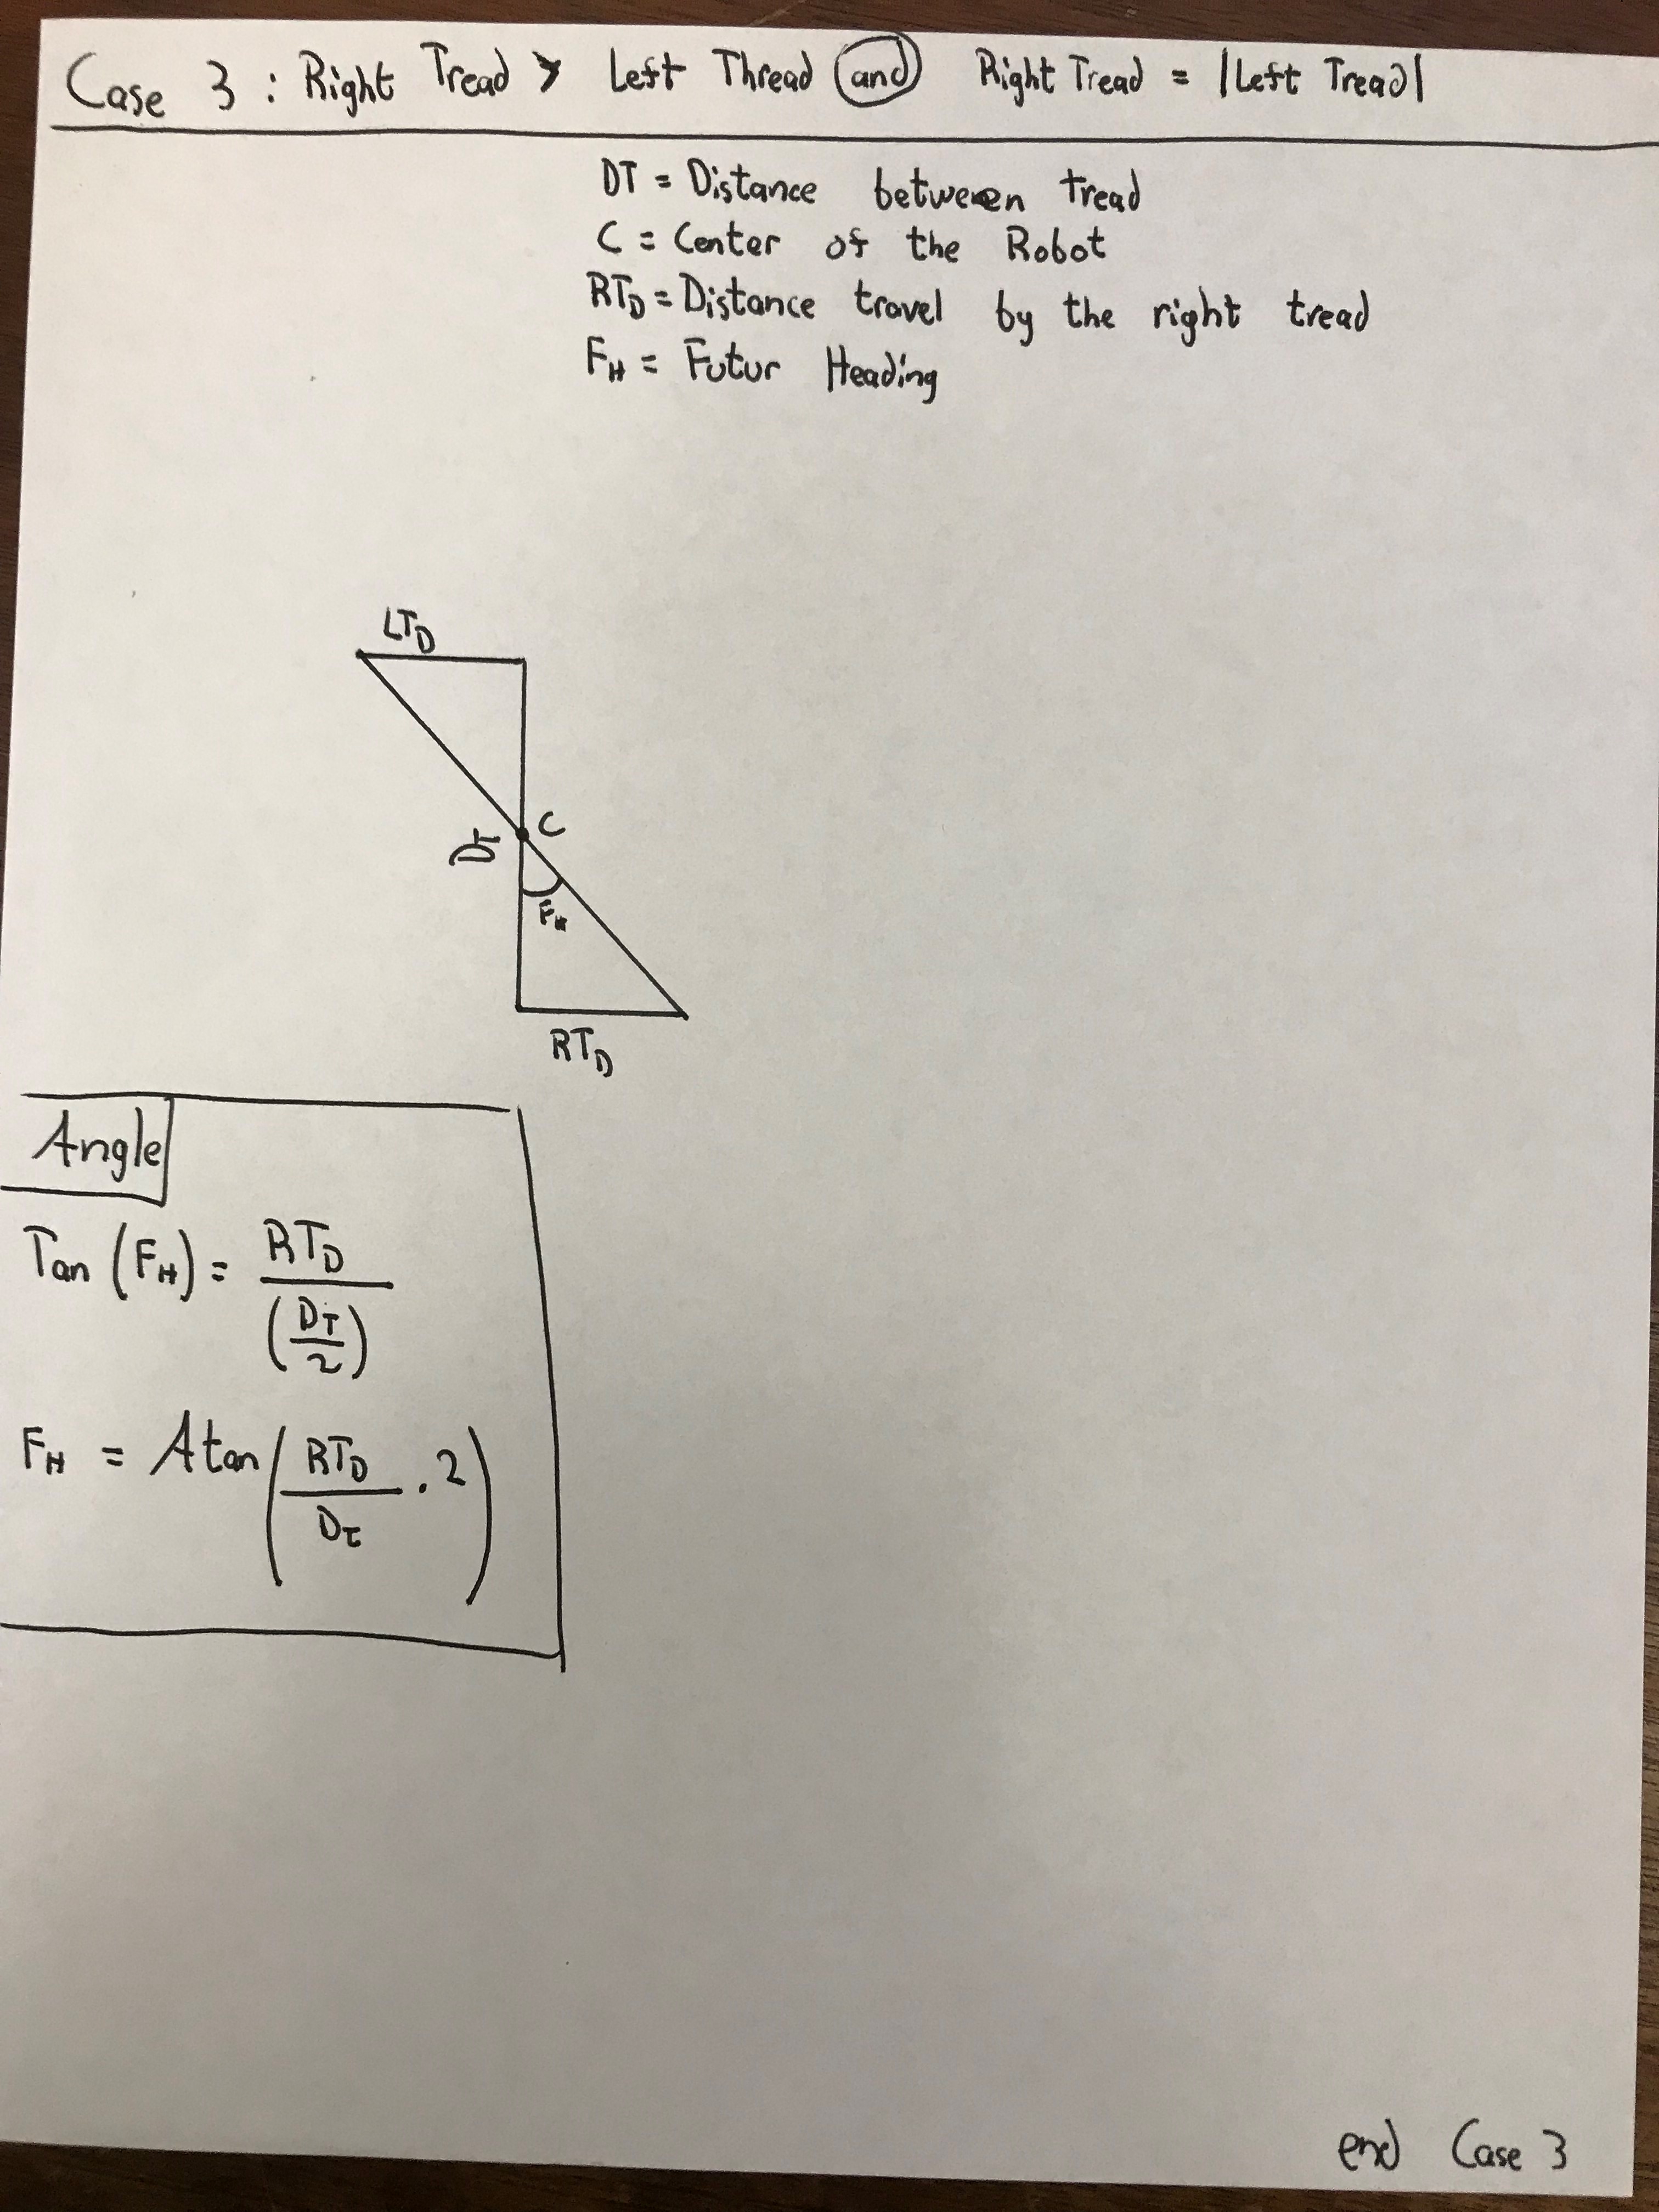 Case 3 : Right Tread > Left Thread and Right Tread = |Left Tread|
DT = Distance between tread
C = Center of the Robot
RTD = Distance travel by the right tread
FH = Futur Heading
LTD
C
DT
FH
RTD
Angle
Tan (FH) = RTD / (DT / 2)
FH = Atan (RTD / DT . 2)
end Case 3